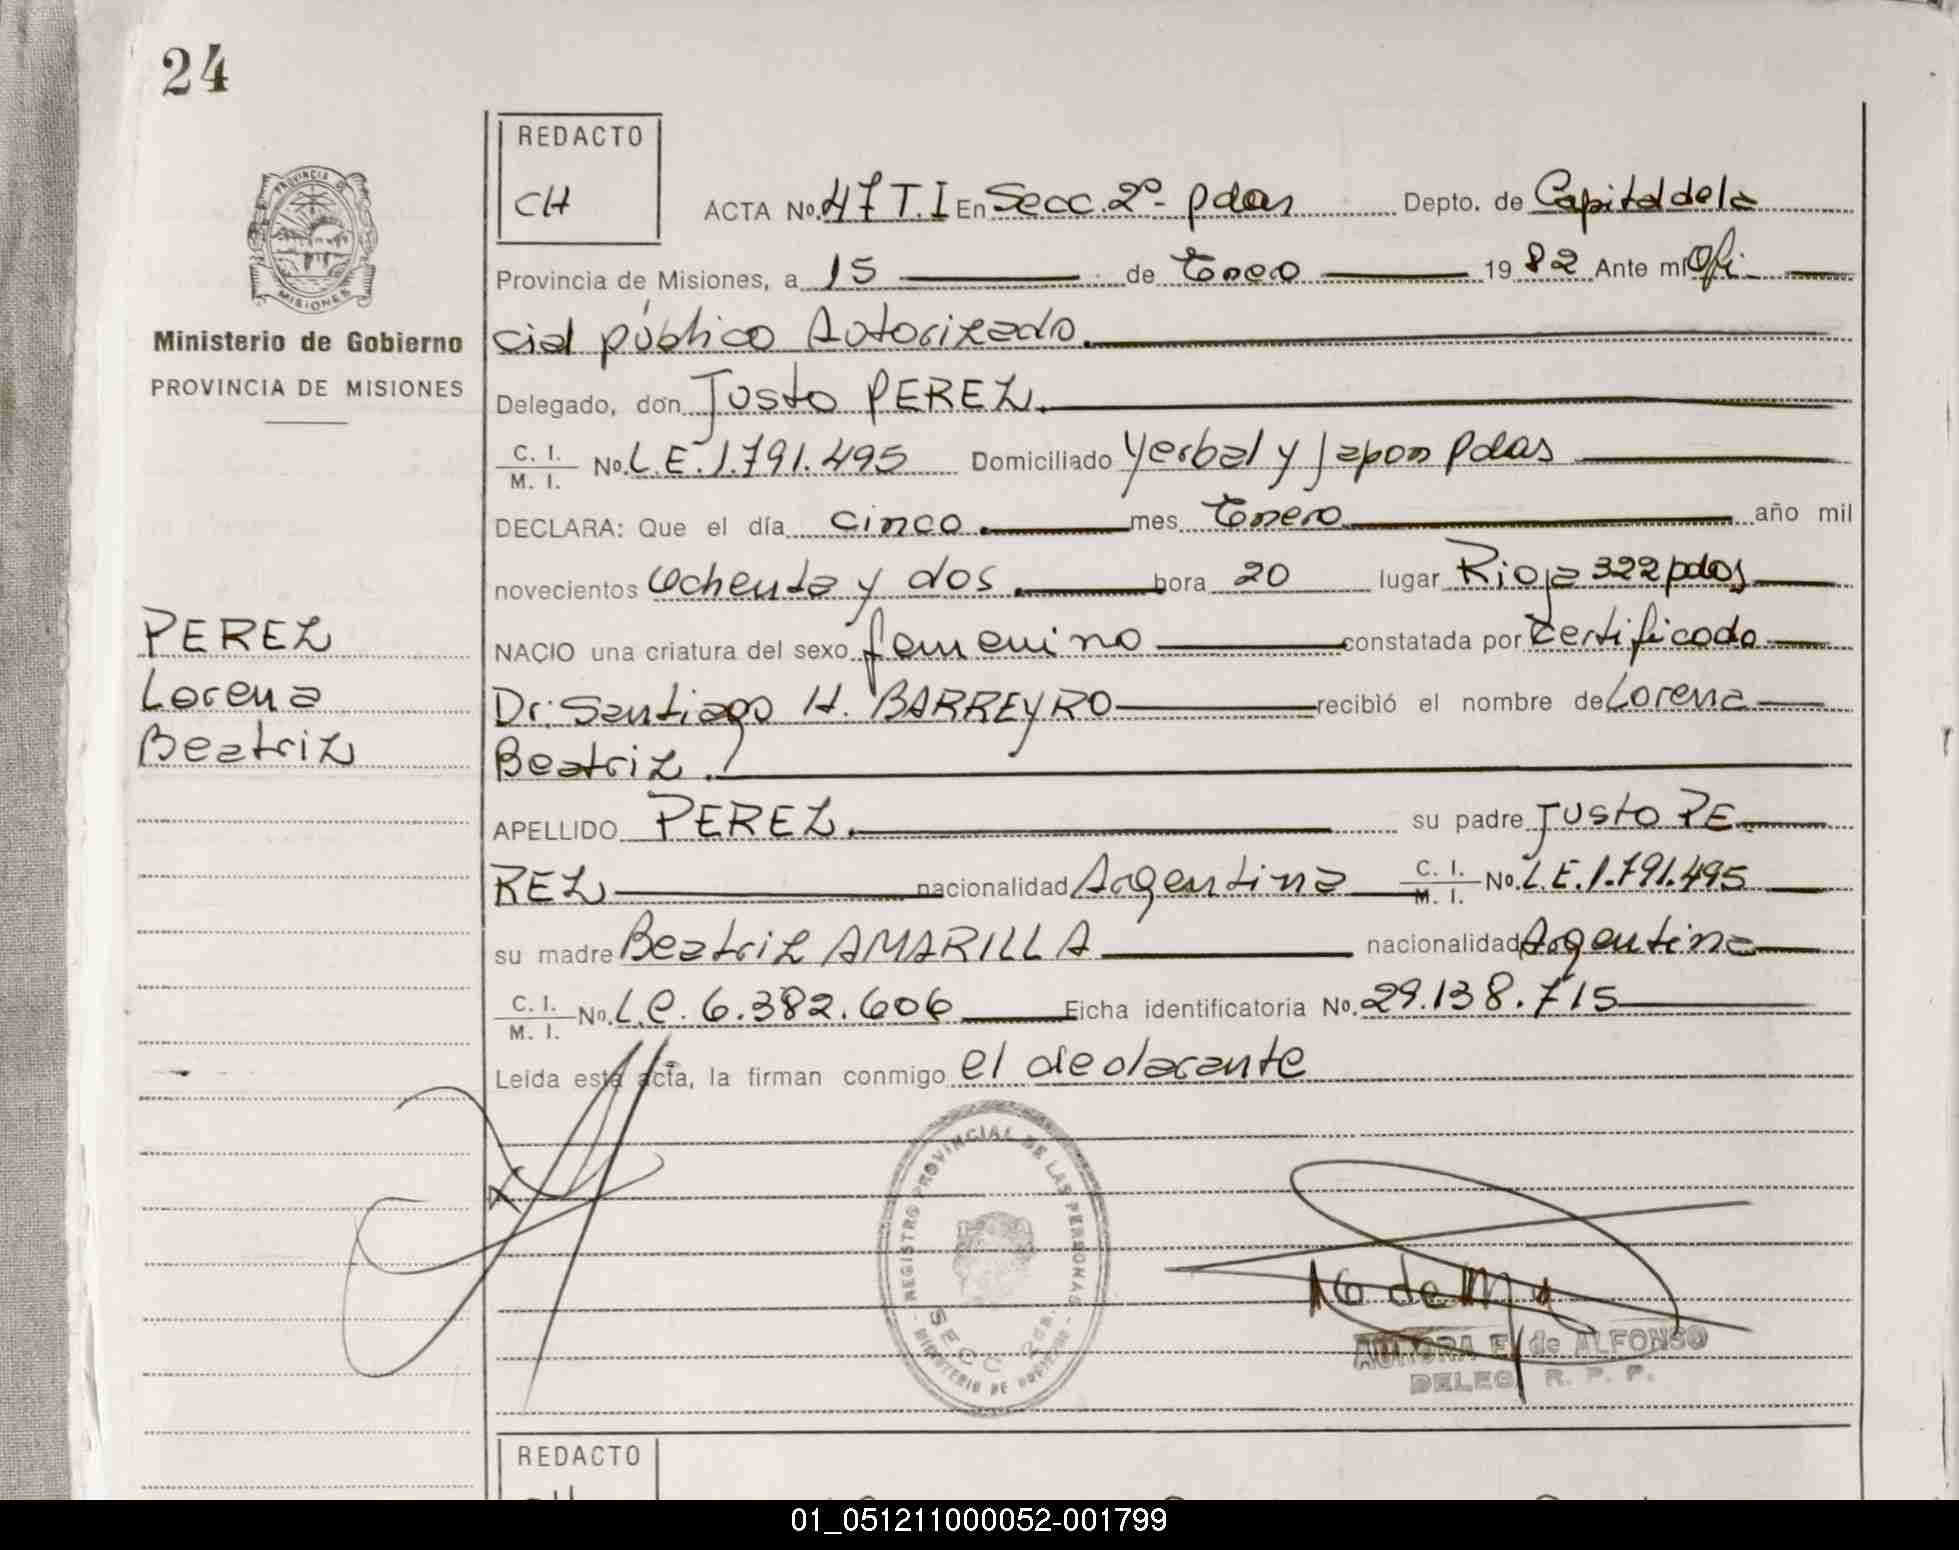 24
REDACTO
CH
ACTA No. 47 T.I En Secc. 2º- pdas Depto. de Capital de la
PROVINCIA DE MISIONES
Provincia de Misiones, a 15 de Enero 1982 Ante mí Ofi-
Ministerio de Gobierno
PROVINCIA DE MISIONES
cial público Autorizado.
Delegado, don Justo PEREZ.
C. I. M. I. No. L.E. 1.791.495 Domiciliado Yerbal y Japon Pdas
DECLARA: Que el día cinco. mes Enero año mil
novecientos ochenta y dos. hora 20 lugar Rioja 322 pdas
PEREZ
Lorena
Beatriz
NACIO una criatura del sexo femenino constatada por certificado
Dr: Santiago H. BARREYRO recibió el nombre de Lorena
Beatriz.
APELLIDO PEREZ. su padre Justo PE
REZ nacionalidad Argentina C. I. M. I. No. L.E. 1.791.495
su madre Beatriz AMARILLA nacionalidad Argentina
C. I. M. I. No. L.C. 6.382.606 Ficha identificatoria No. 29.138.715
Leída esta acta, la firman conmigo el declarante
REGISTRO PROVINCIAL DE LAS PERSONAS
SECC 2da.
MINISTERIO DE GOBIERNO
AURORA E. de ALFONSO
DELEG. R. P. P.
REDACTO
01_051211000052-001799